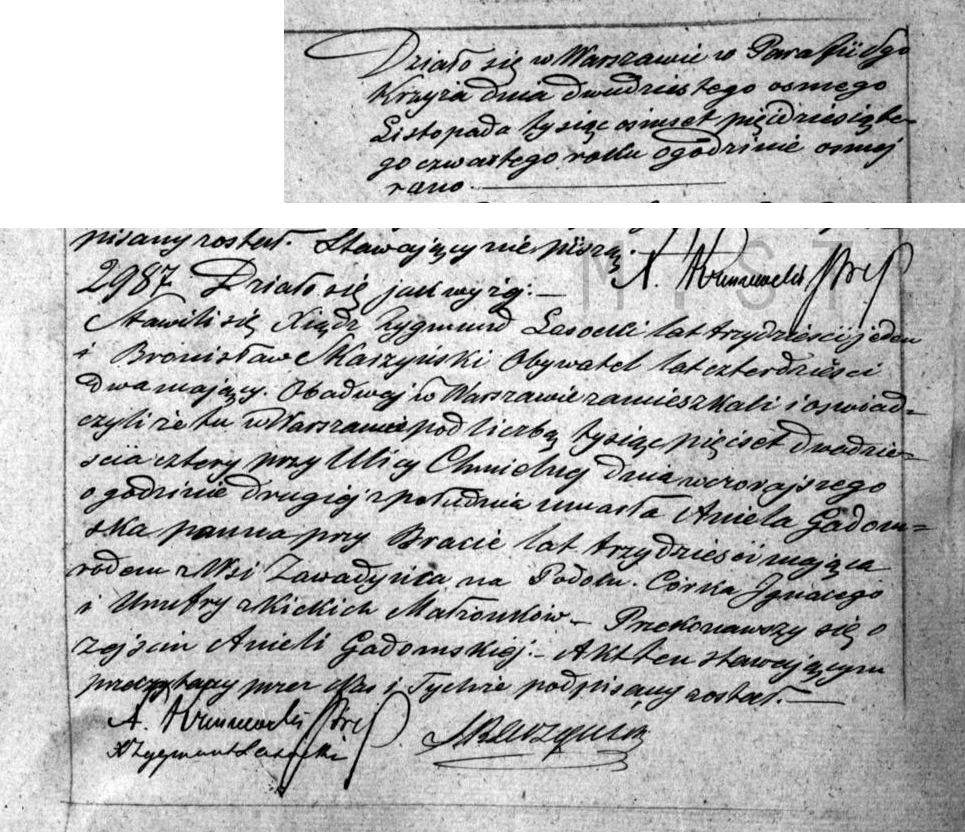 Działo się w Warszawie w Parafii Sgo
Krzyża dnia dwudziestego osmego
Listopada tysiąc osmset pięćdziesiąte-
go czwartego roku o godzinie osmej
rano.
pisany został. Stawający nie piszą.
2987 Działo się jak wyżej:
Stawili się Xiądz Zygmund Lasocki lat trzydzieści jeden
i Bronisław Skarzyński Obywatel lat czterdzieści
dwa mający. Obadwaj w Warszawie zamieszkali i oswiad=
czyli że tu w Warszawie pod liczbą tysiąc pięćset dwadzie=
scia cztery przy Ulicy Chmielnej dnia wczorajszego
o godzinie drugiej z południa umarła Aniela Gadom=
ska panna przy Bracie lat trzydzieści mająca
rodem z Wsi Zawadyńka na Podolu. Córka Ignacego
i Umfry z Kickich Małżonków. Przekonawszy się o
zejściu Anieli Gadomskiej. Akt ten stawającym
przeczytany przez Nas i Tychże podpisany został.
X Zygmunt Lasocki